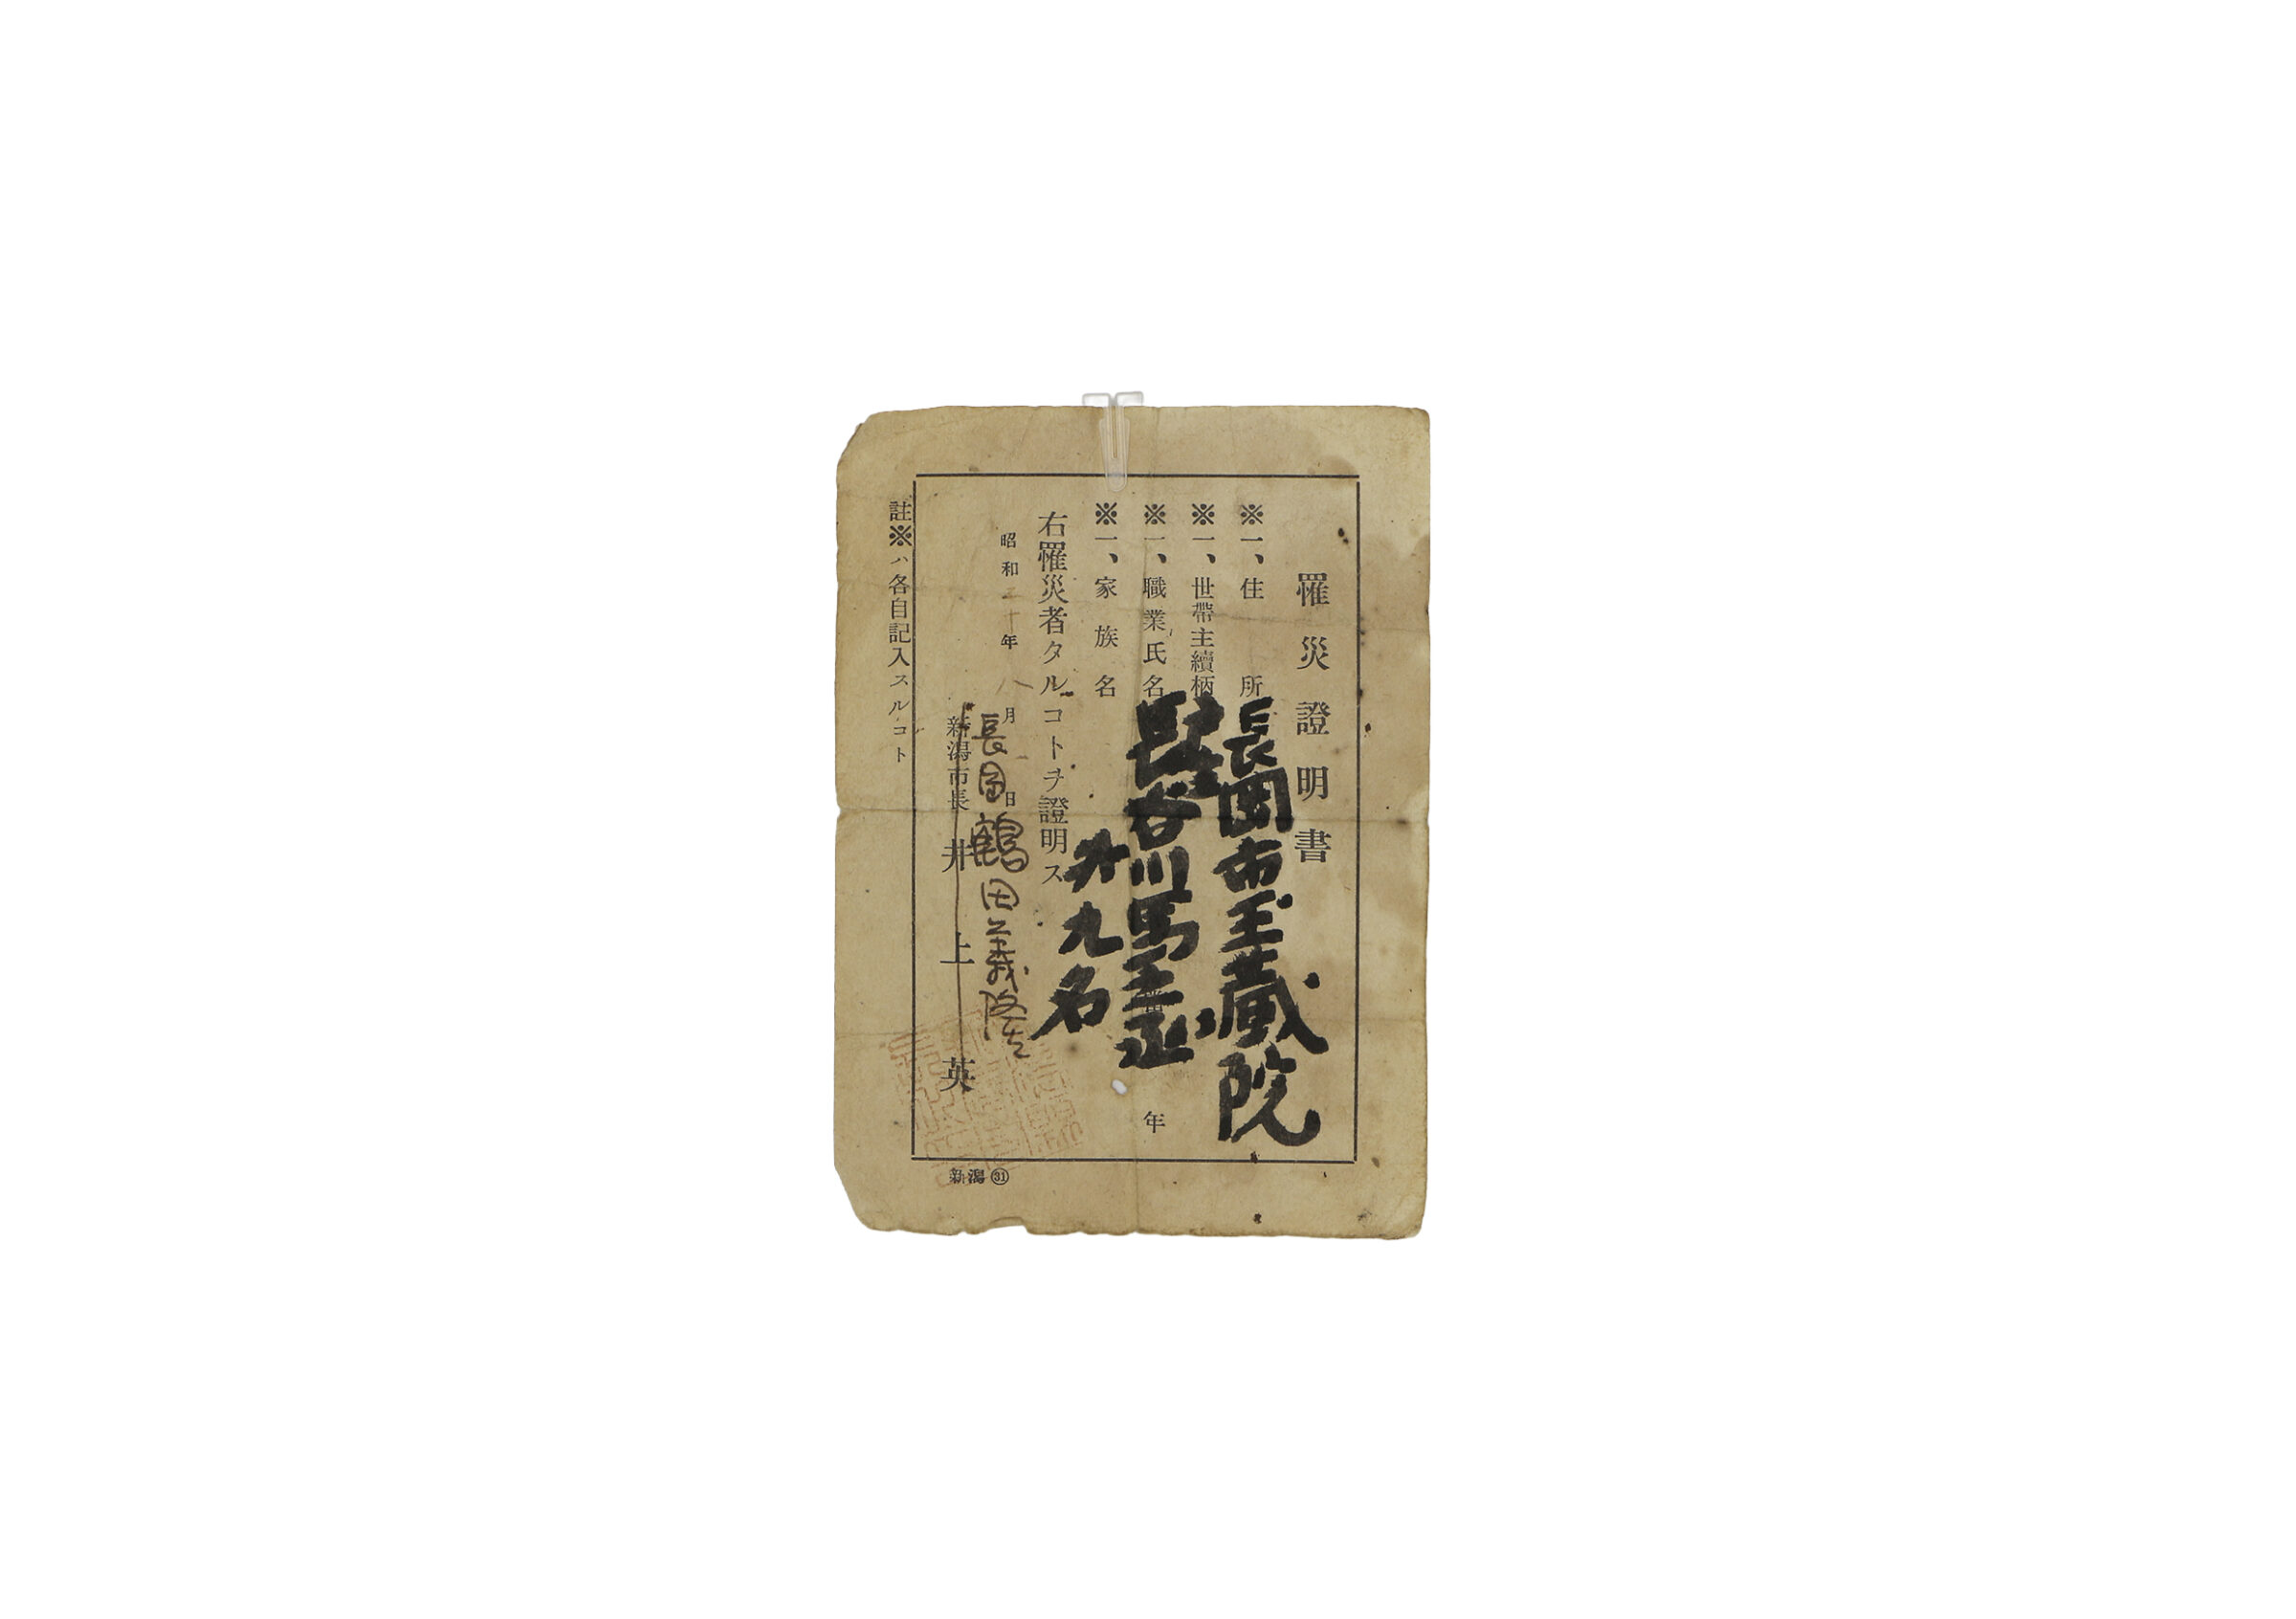 罹災證明書
※一、住所 長岡市玉蔵院
※一、世帶主續柄
※一、職業氏名 長谷川 年
※一、家族名 外九名
右罹災者タルコトヲ證明ス
昭和二十年八月 日
長岡 鶴田義隆
新潟市長 井上英
註※ハ各自記入スルコト
新潟㉛